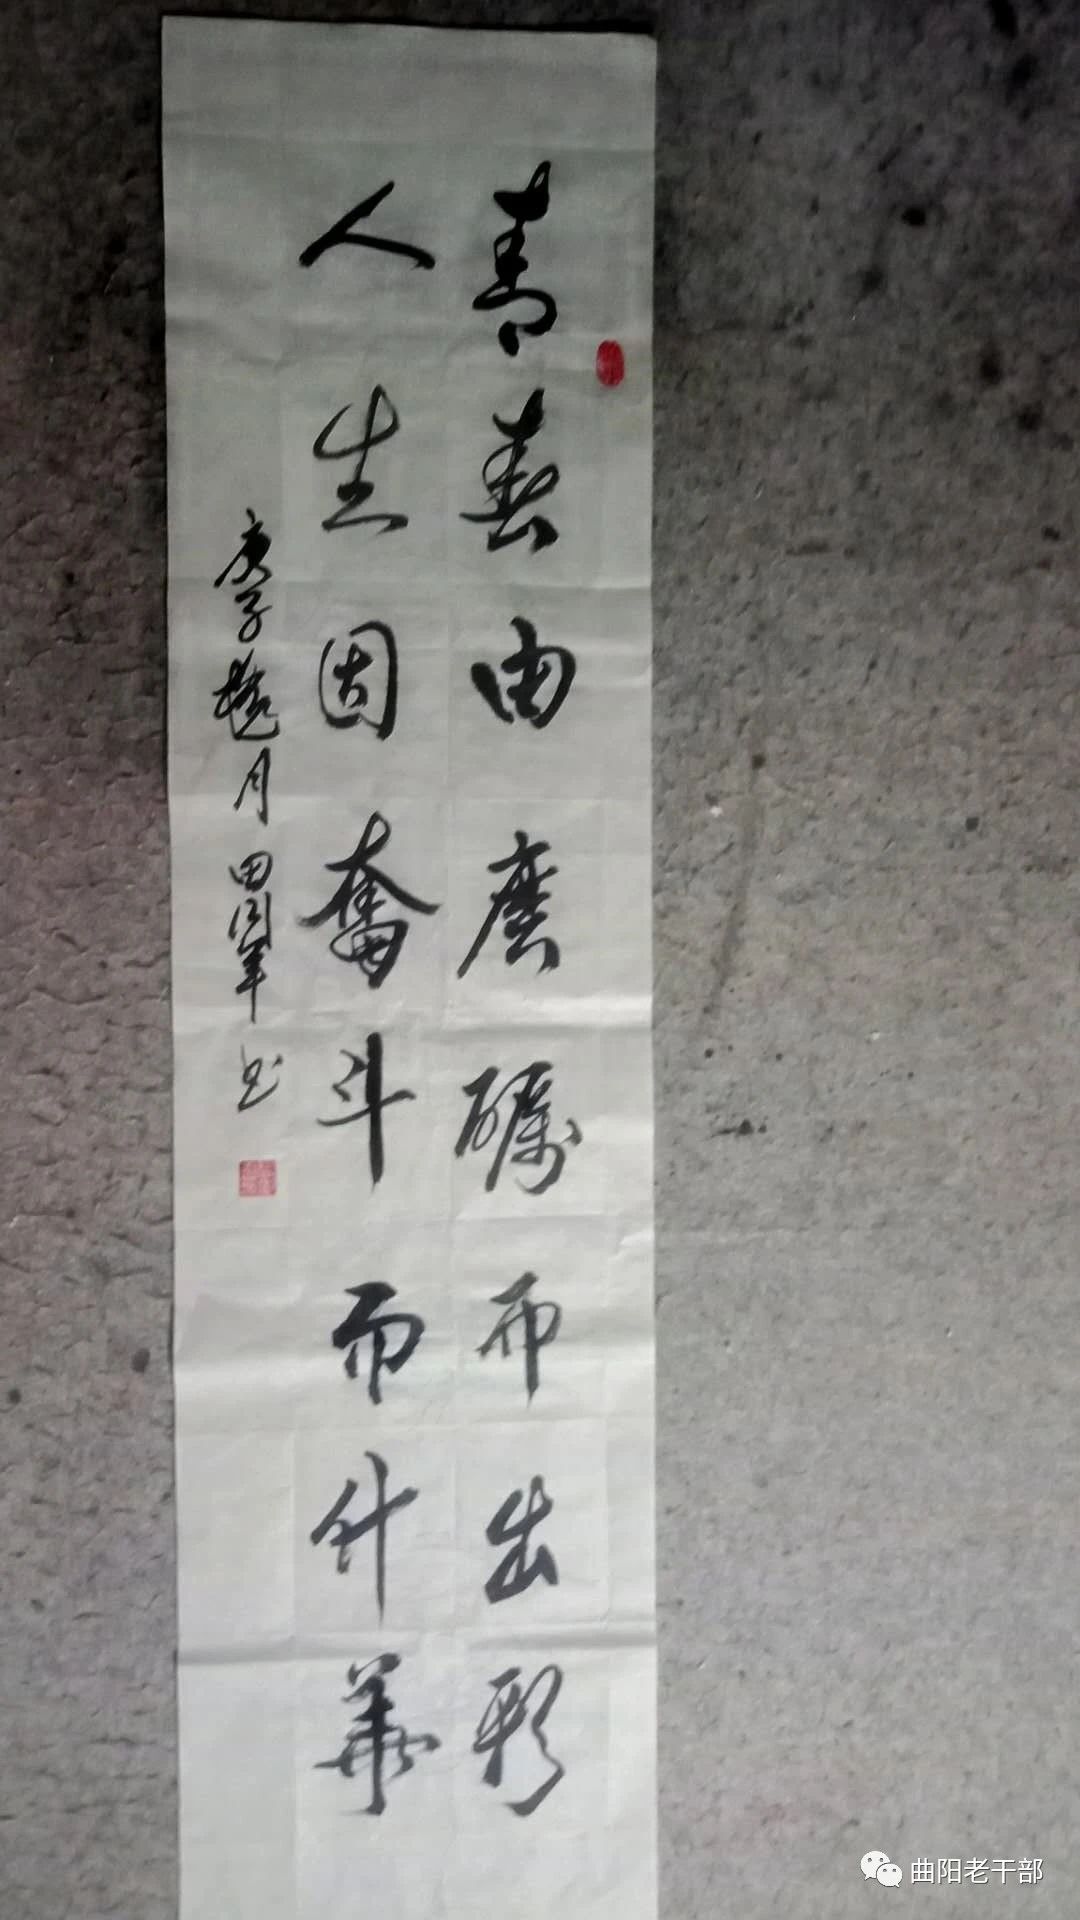 青春由磨砺而出彩
人生因奋斗而升华
庚子 月 田国军书
曲阳老干部